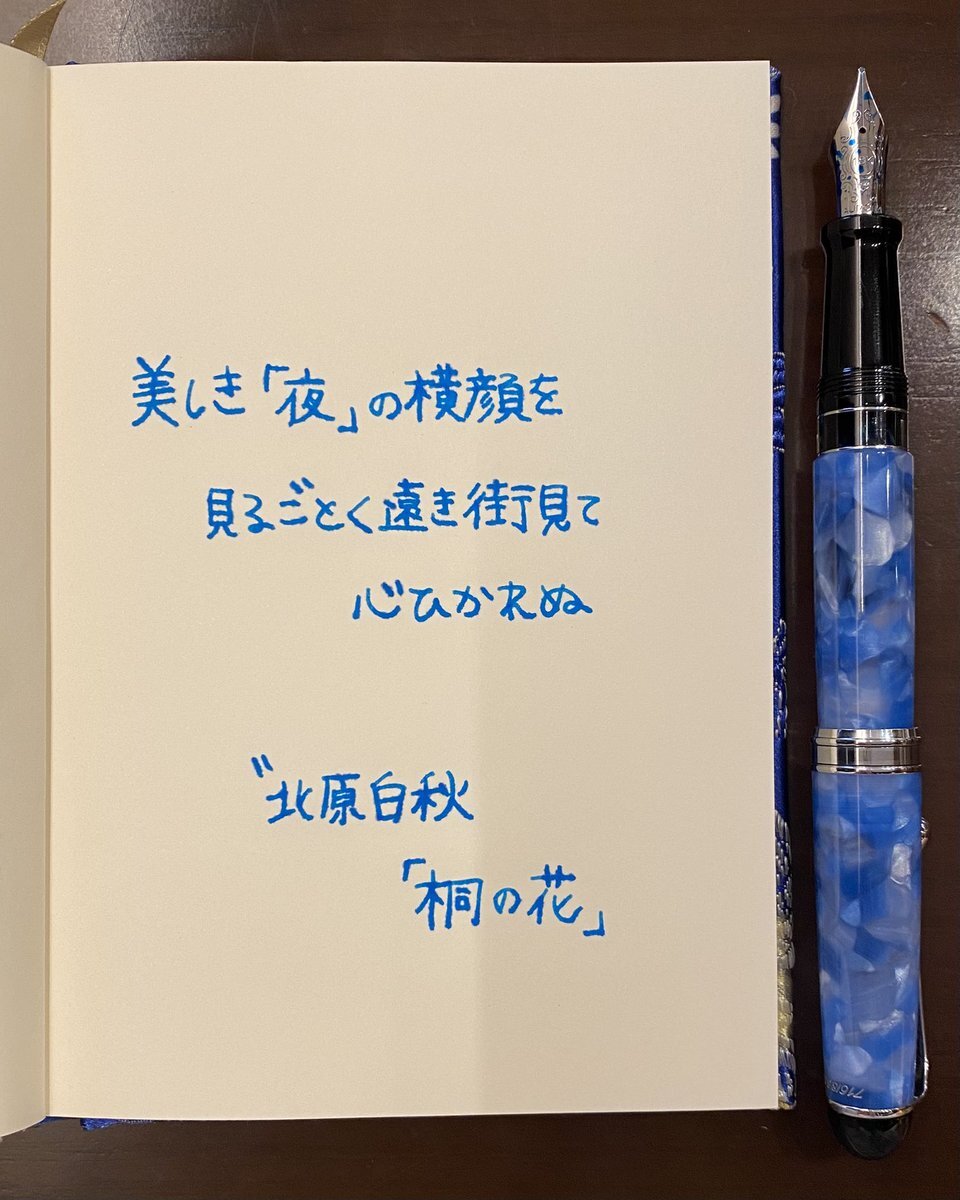 美しき「夜」の横顔を
見るごとく遠き街見て
心ひかれぬ
〃北原白秋
「桐の花」